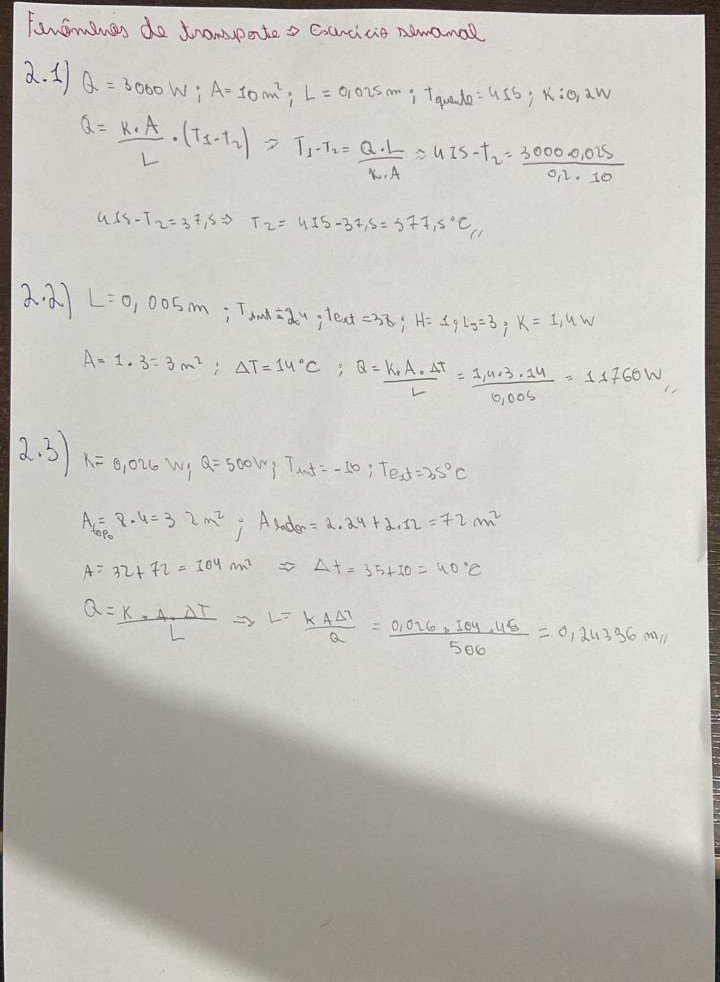 Fenômenos de transporte ⇒ Exercício semanal
2.1) Q = 3000 W ; A = 10 m² ; L = 0,025 m ; Tquente = 415 ; K : 0,2 W
Q = K.A/L . (T1-T2) ⇒ T1-T2 = Q.L/K.A ⇒ 415-T2 = 3000.0,025/0,2.10
415-T2 = 37,5 ⇒ T2 = 415-37,5 = 377,5°C //
2.2) L = 0,005 m ; Tint = 24 ; Text = 38 ; H = 1 ; L = 3 ; K = 1,4 W
A = 1.3 = 3 m² ; ΔT = 14°C ; Q = K.A.ΔT/L = 1,4.3.14/0,005 = 11760 W //
2.3) K = 0,026 W ; Q = 500 W ; Tint = -10 ; Text = 35°C
Atopo = 8.4 = 32 m² ; Alados = 2.24 + 2.12 = 72 m²
A = 32 + 72 = 104 m² ⇒ Δt = 35+10 = 40°C
Q = K.A.ΔT/L ⇒ L = KAΔT/Q = 0,026.104.45/500 = 0,24336 m //